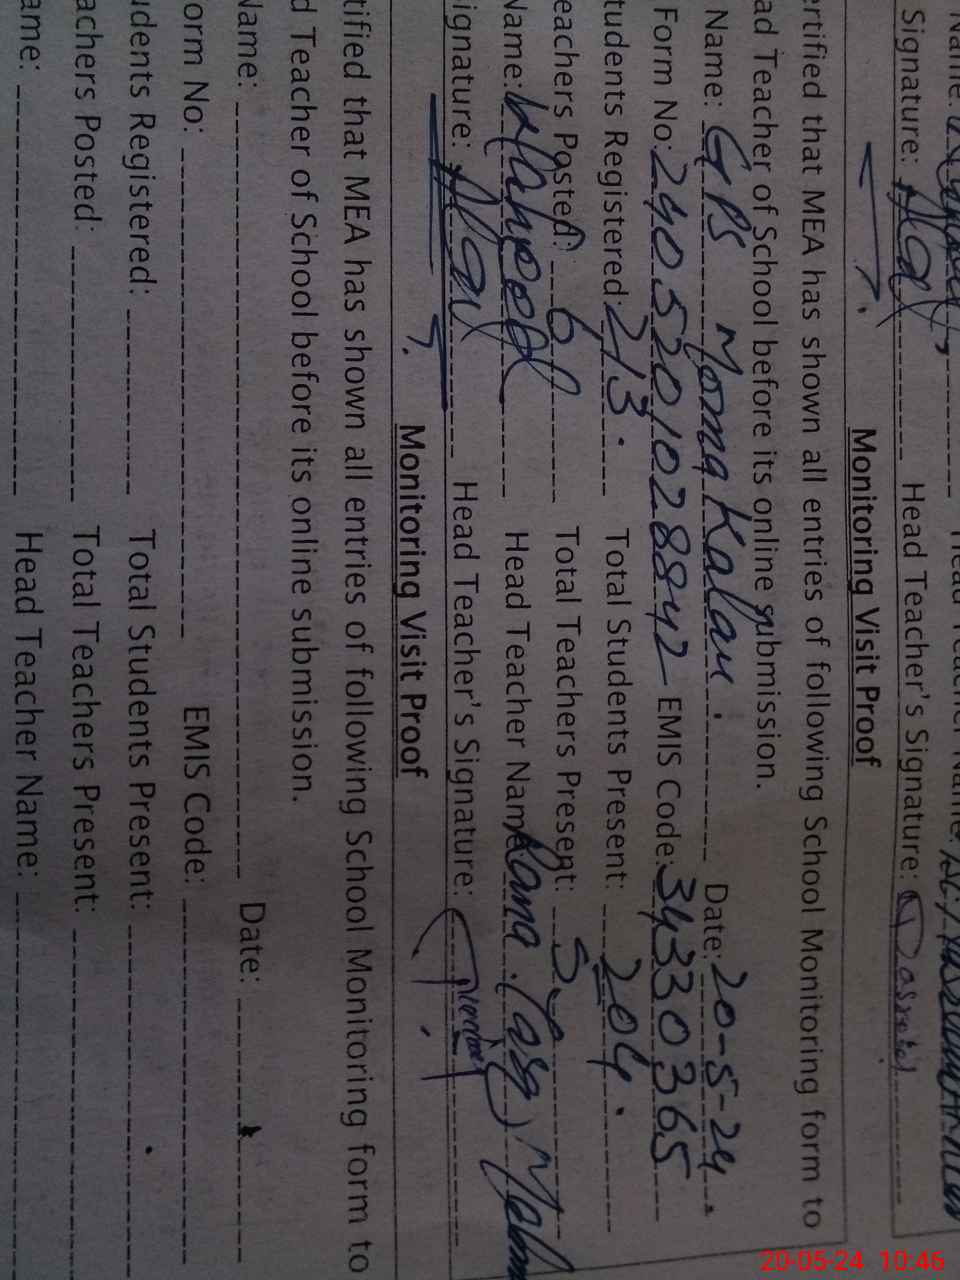 Signature: Head Teacher's Signature:
Monitoring Visit Proof
ertified that MEA has shown all entries of following School Monitoring form to
ad Teacher of School before its online submission.
Name: GPS Moma Kalan. Date: 20-5-24
Form No: 2405201028842 EMIS Code: 34330365
tudents Registered: 213. Total Students Present: 204.
eachers Posted: 6 Total Teachers Present: 5
Name: Waheed Head Teacher Name Rana
ignature: Head Teacher's Signature:
Monitoring Visit Proof
tified that MEA has shown all entries of following School Monitoring form to
d Teacher of School before its online submission.
Name: Date:
orm No: EMIS Code:
udents Registered: Total Students Present:
achers Posted: Total Teachers Present:
ame: Head Teacher Name:
20-05-24 10:46